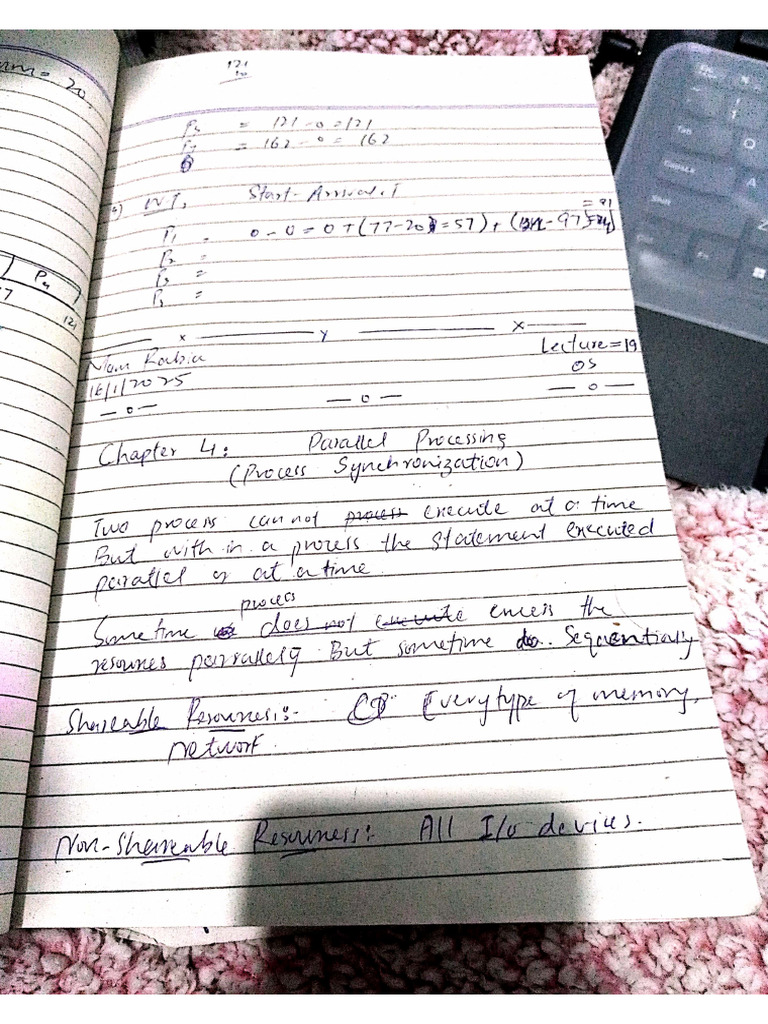 mm = 20
121
P3 = 121 - 0 = 121
P4 = 162 - 0 = 162
WT, Start - Arrival.T
= 91
P1 = 0 - 0 = 0 + (77 - 20 = 57) + (121 - 97)
P2 =
P3 =
P4
121
x y x
Mam Rabia Lecture = 19
16/1/2025 OS
— 0 — — 0 — — 0 —
Chapter 4: Parallel Processing
(Process Synchronization)
Two process can not process execute at a time
But with in a process the statement executed
parallel or at a time.
process
Some time does not execute the
resources parrallelq But sometime do. Sequentially
Shareable Resources:- Every type of memory,
network.
Non-Shareable Resources: All I/o devices.